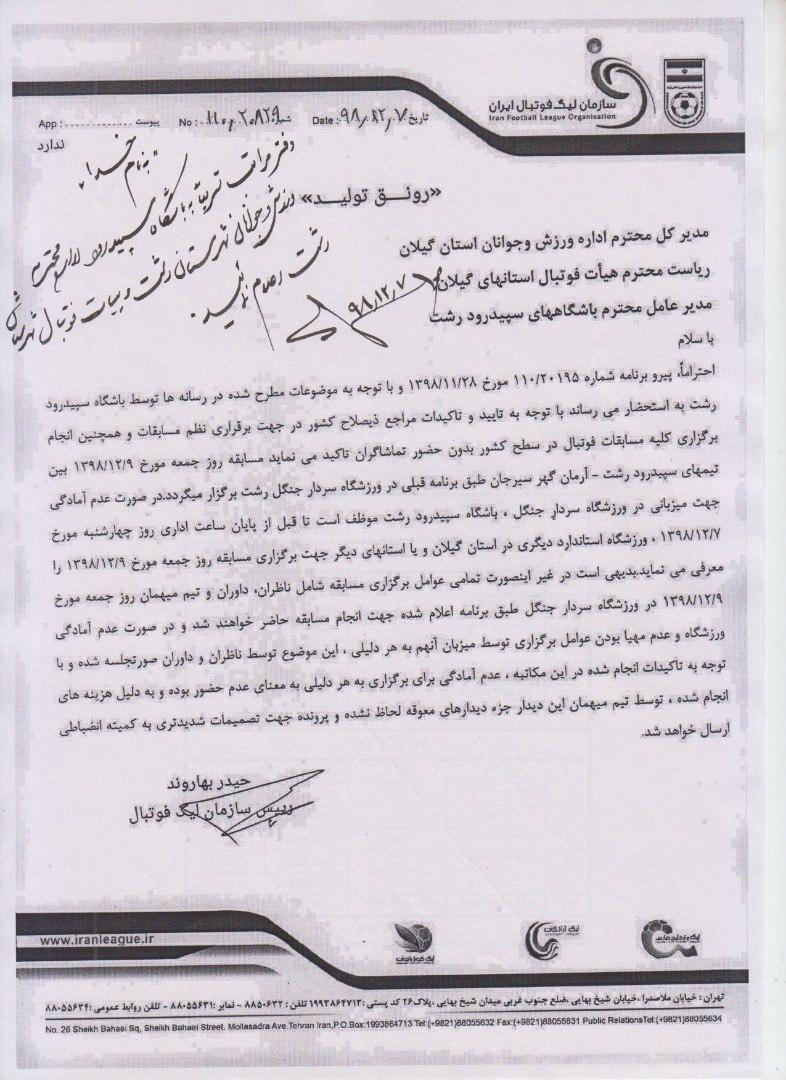 سازمان لیگ فوتبال ایران
Iran Football League Organisation
تاریخ Date : ۹۸/۱۲/۷
شماره No : ۱۱۰/۲۰۸۲۹
پیوست App :
ندارد
«رونـــق تولیـد»
مدیر کل محترم اداره ورزش وجوانان استان گیلان
ریاست محترم هیأت فوتبال استانهای گیلان
مدیر عامل محترم باشگاههای سپیدرود رشت
"بنام خدا"
دفتر
باشگاه سپیدرود
ورزش و جوانان شهرستان رشت و هیات فوتبال شهرستان
رشت اعلام نمائید.
۹۸/۱۲/۷
با سلام
احتراماً، پیرو برنامه شماره ۱۱۰/۲۰۱۹۵ مورخ ۱۳۹۸/۱۱/۲۸ و با توجه به موضوعات مطرح شده در رسانه ها توسط باشگاه سپیدرود
رشت به استحضار می رساند با توجه به تایید و تاکیدات مراجع ذیصلاح کشور در جهت برقراری نظم مسابقات و همچنین انجام
برگزاری کلیه مسابقات فوتبال در سطح کشور بدون حضور تماشاگران تاکید می نماید مسابقه روز جمعه مورخ ۱۳۹۸/۱۲/۹ بین
تیمهای سپیدرود رشت - آرمان گهر سیرجان طبق برنامه قبلی در ورزشگاه سردار جنگل رشت برگزار میگردد.در صورت عدم آمادگی
جهت میزبانی در ورزشگاه سردار جنگل ، باشگاه سپیدرود رشت موظف است تا قبل از پایان ساعت اداری روز چهارشنبه مورخ
۱۳۹۸/۱۲/۷ ، ورزشگاه استاندارد دیگری در استان گیلان و یا استانهای دیگر جهت برگزاری مسابقه روز جمعه مورخ ۱۳۹۸/۱۲/۹ را
معرفی می نماید.بدیهی است در غیر اینصورت تمامی عوامل برگزاری مسابقه شامل ناظران، داوران و تیم میهمان روز جمعه مورخ
۱۳۹۸/۱۲/۹ در ورزشگاه سردار جنگل طبق برنامه اعلام شده جهت انجام مسابقه حاضر خواهند شد و در صورت عدم آمادگی
ورزشگاه و عدم مهیا بودن عوامل برگزاری توسط میزبان آنهم به هر دلیلی ، این موضوع توسط ناظران و داوران صورتجلسه شده و با
توجه به تاکیدات انجام شده در این مکاتبه ، عدم آمادگی برای برگزاری به هر دلیلی به معنای عدم حضور بوده و به دلیل هزینه های
انجام شده ، توسط تیم میهمان این دیدار جزء دیدارهای معوقه لحاظ نشده و پرونده جهت تصمیمات شدیدتری به کمیته انضباطی
ارسال خواهد شد.
حیدر بهاروند
رییس سازمان لیگ فوتبال
www.iranleague.ir
لیگ آزادگان
تهران : خیابان ملاصدرا ،خیابان شیخ بهایی ،ضلع جنوب غربی میدان شیخ بهایی ،پلاک۲۶ کد پستی :۱۹۹۳۸۶۴۷۱۳ تلفن : ۸۸۵۰۶۳۲ - نمابر :۸۸۰۵۵۶۳۱ - تلفن روابط عمومی :۸۸۰۵۵۶۳۴
No. 26 Sheikh Bahaei Sq, Sheikh Bahaei Street. Mollasadra Ave.Tehran Iran,P.O.Box:1993864713 Tel:(+9821)88055632 Fax:(+9821)88055631 Public RelationsTel:(+9821)88055634